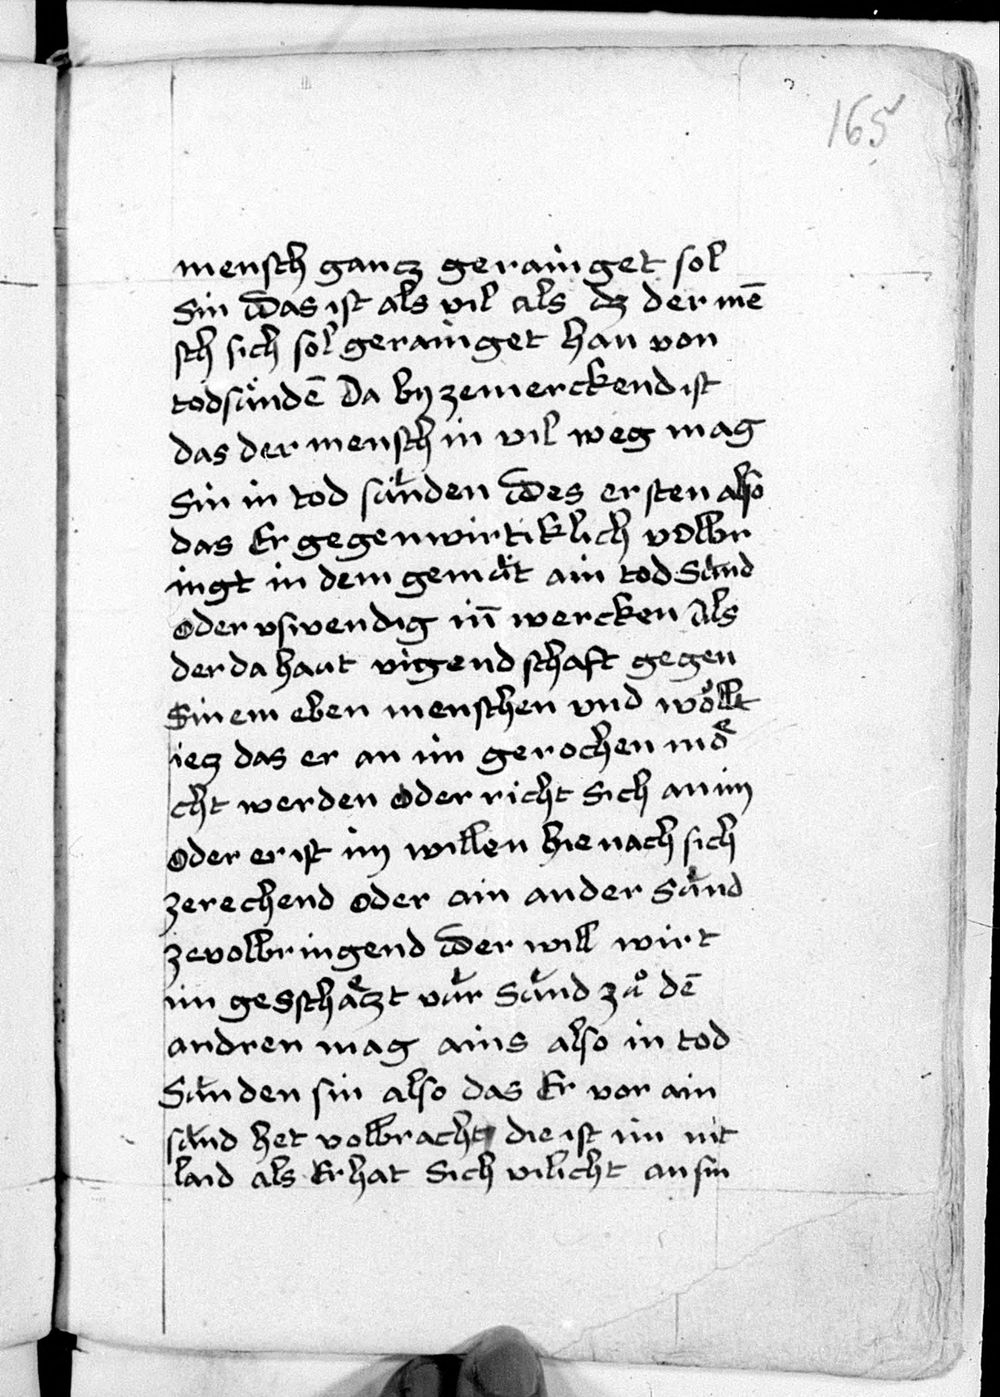 165
mensch gantz gerainget sol
Sin Das ist als vil als dz der mē
sch sich sol gerainget han von
todsu̇ndē Da by zemerckend ist
das der mensch in vil weg mag
Sin in tod su̇nden Des ersten also
das Er gegenwirtiklich volbr
ingt in dem gemu̇t ain tod Su̇nd
Oder vswendig in̄ wercken Als
der da haut vigendschaft gegen
Sinem eben menschen vnd wo̊llt
ietz das er an im gerochen moͤ
cht werden Oder richt Sich an im
Oder er ist im willen hie nach sich
zerechend oder ain ander Su̇nd
zevolbringend Der will wirt
im gesschaͤtzt vu̇r Su̇nd zů dē
andren mag ains also in tod
Su̇nden sin also das Er vor ain
su̇nd het volbracht die ist im nit
laid als Er hat Sich vilicht an sin